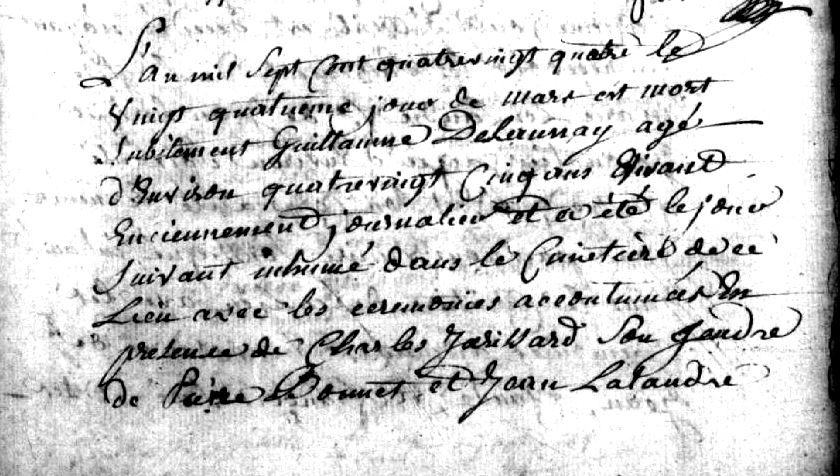 L'an mil sept cent quatrevingt quatre le
vingt quatrieme jour de mars est mort
subitement Guillaume Delaunay agé
d'Environ quatrevingt Cinq ans vivant
Enciennement journalier Et a été le jour
suivant inhumé dans le Cimetiere de ce
Lieu avec les ceremonies accoutumées En
presence de Charles Son gendre
de Pierre Bonnet et Jean Lalandre